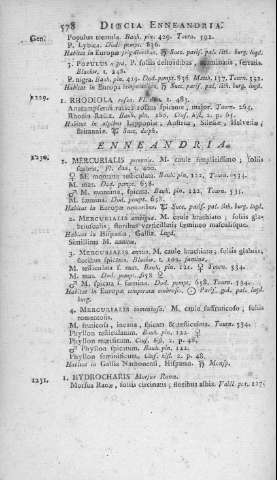 578 DIŒCIA ENNEANDRIA.
Gen. Populus tremula. Bauh. pin. 429. Tourn. 592.
P. Lybica. Dod. pempt. 836.
Habitat in Europa frigidioribus. Suec. paris. pal. lith. burg. lugd.
3. POPULUS nigra. P. foliis deltoidibus, acuminatis, serratis.
Blackw. t. 248.
P. nigra. Bauh. pin. 429. Dod. pempt. 836. Tourn. 592.
Habitat in Europa temperatiore. Suec. paris. pal. lith. burg. lugd.
1229. 1. RHODIOLA rosea. Fl. t. 483.
Anacampseros radice rosam spirante, major. Tourn. 264.
Rhodia Radix. Bauh. pin. Cluf. hist. 2. p. 65.
Habitat in alpibus Lapponiæ, Austriæ, Silesiæ, Helvetiæ,
Britanniæ. Suec. delph.
ENNEANDRIA.
1230. 1. MERCURIALIS perennis. M. caule simplicissimo, foliis
scabris. Fl. dan. t. 400.
♀ M. montana testiculata. Bauh. pin. 122. Tourn. 534.
M. mas. Dod. pempt. 658.
♂ M. montana, spicata. Bauh. pin. 122. Tourn. 534.
M. fœmina. Dod. pempt. 658.
Habitat in Europæ nemoribus. Suec. paris. pal. lith. burg. lugd.
2. MERCURIALIS ambigua. M. caule brachiato; foliis
floribus verticillatis fœmineo masculisque.
Habitat in Hispania, Gallia. Lugd.
Simillima M. annuæ.
3. MERCURIALIS annua. M. caule brachiato; foliis glabris,
floribus spicatis. Blackw. t. 162. fœmina.
M. testiculata s. mas. Bauh. pin. 121. ♀ Tourn. 534.
M. mas. Dod. pempt. 658 ♀
♂ M. spicata s. fœmina. Dod. pempt. 658. Tourn. 534.
Habitat in Europæ temperatæ umbrosis. ⊙ Paris. pal. lugd.
burg.
4. MERCURIALIS tomentosa. M. caule suffruticoso; foliis
tomentosis.
M. fruticosa, incana, spicata & testiculata. Tourn. 534.
Phyllon testiculatum. Bauh. pin. 122 ♀
Phyllon marificum. Cluf. hist. 2. p. 48.
♂ Phyllon spicatum. Bauh. pin. 122.
Phyllon feminificum. Cluf. hist. 2. p. 48.
Habitat in Gallia Narbonensi, Hispania. Monsp.
1231. 1. HYDROCHARIS Morsus Ranæ.
Morsus Ranæ, foliis circinatis; floribus albis. Vaill. par. 127.